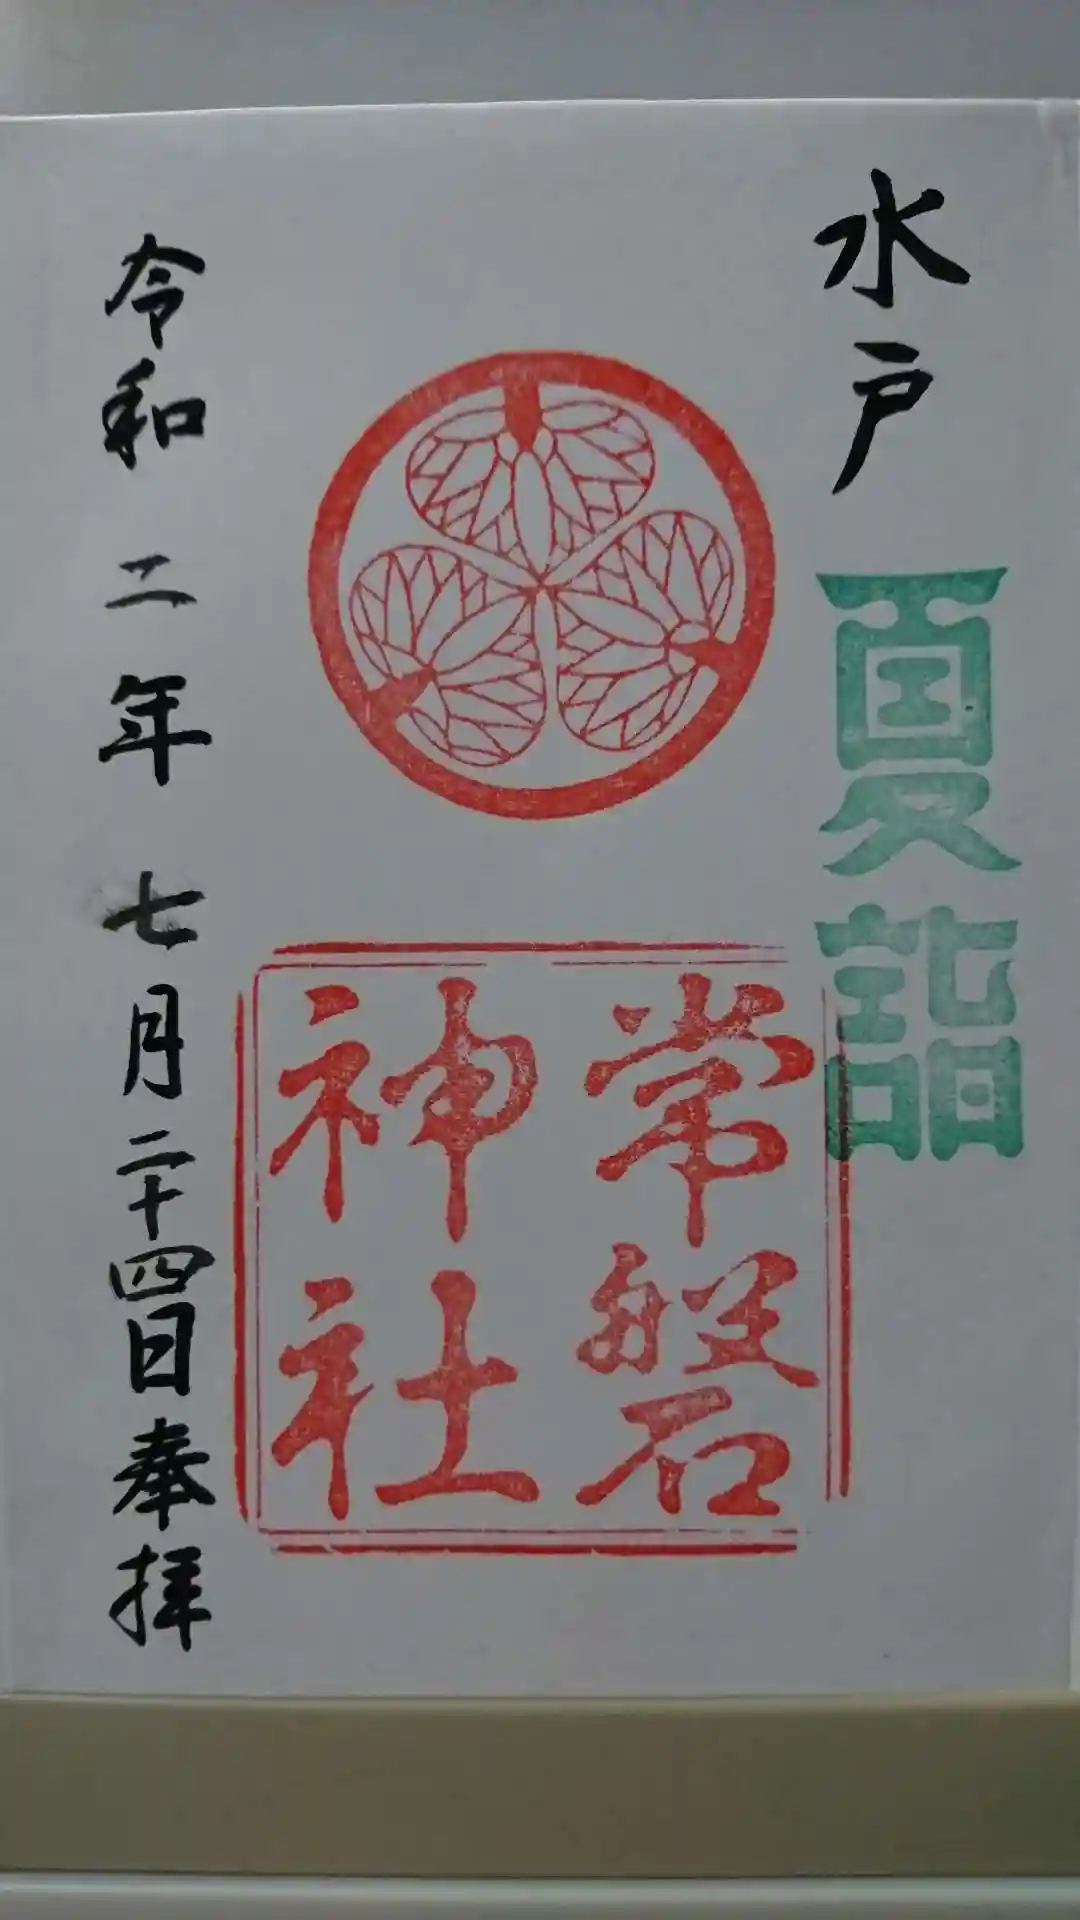 水戸
夏詣
常磐
神社
令和二年七月二十四日奉拝